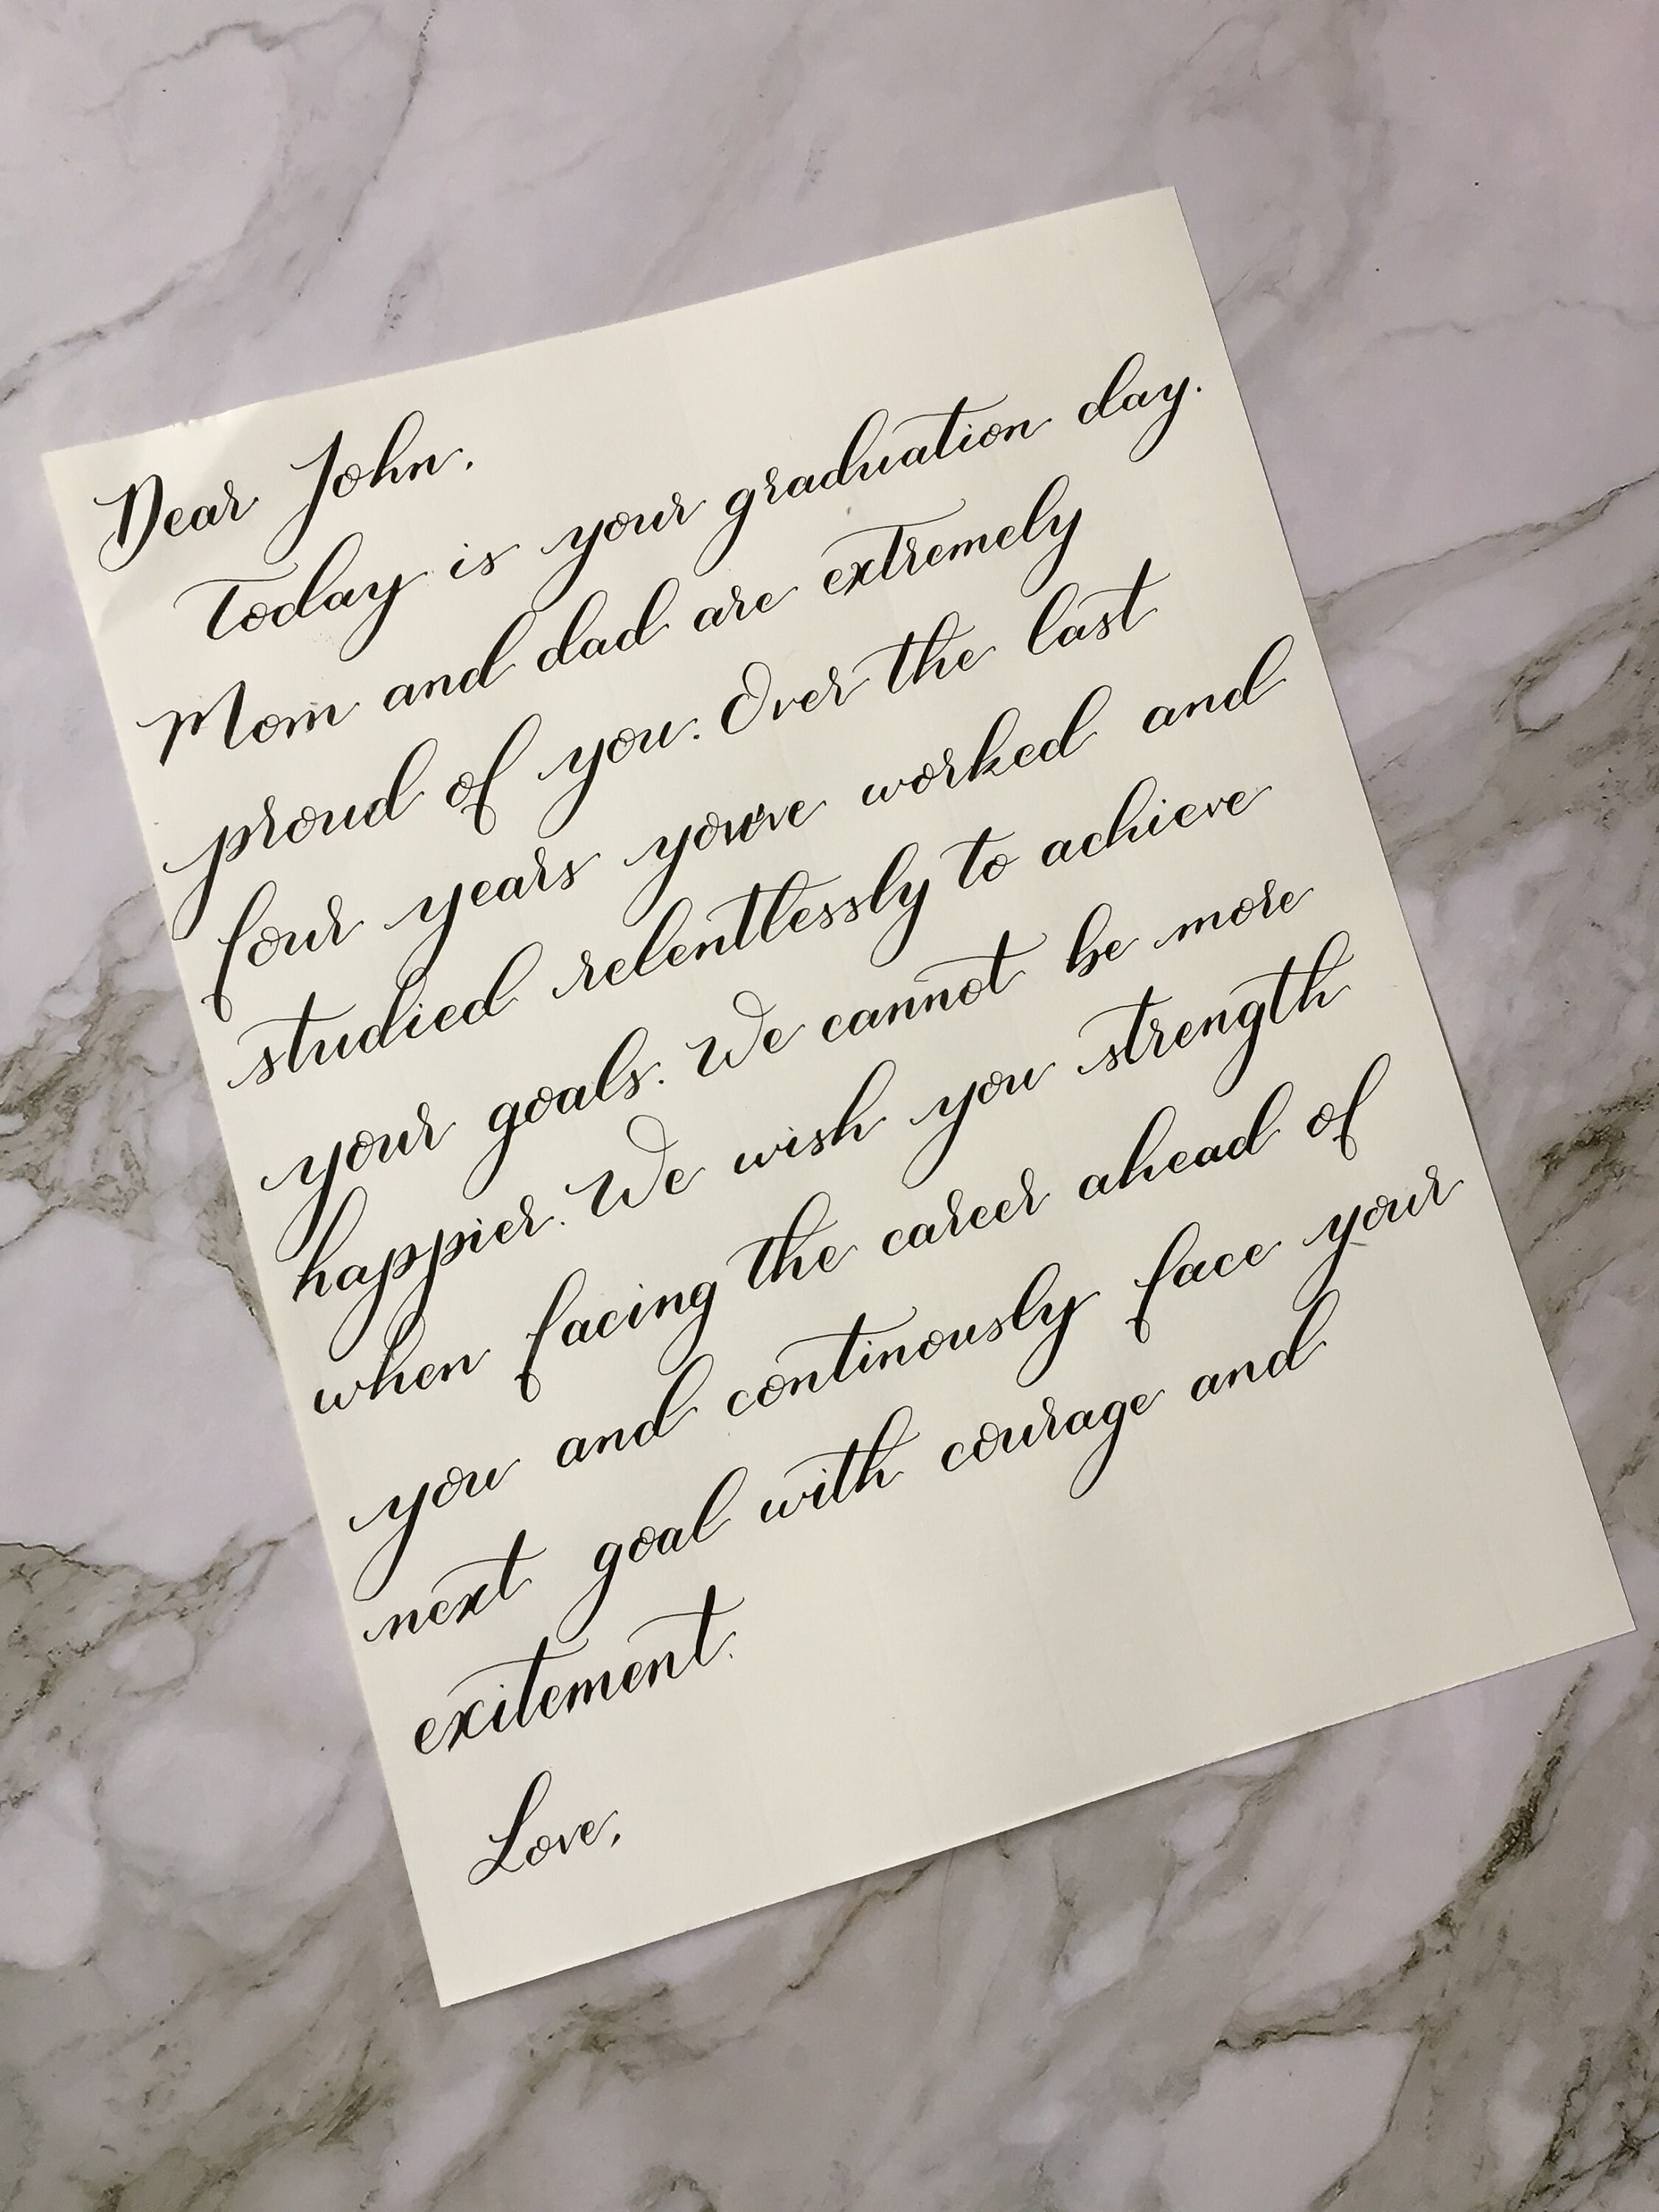 Dear John,
Today is your graduation day.
Mom and dad are extremely
proud of you. Over the last
four years you've worked and
studied relentlessly to achieve
your goals. We cannot be more
happier. We wish you strength
when facing the career ahead of
you and continously face your
next goal with courage and
exitement.
Love,